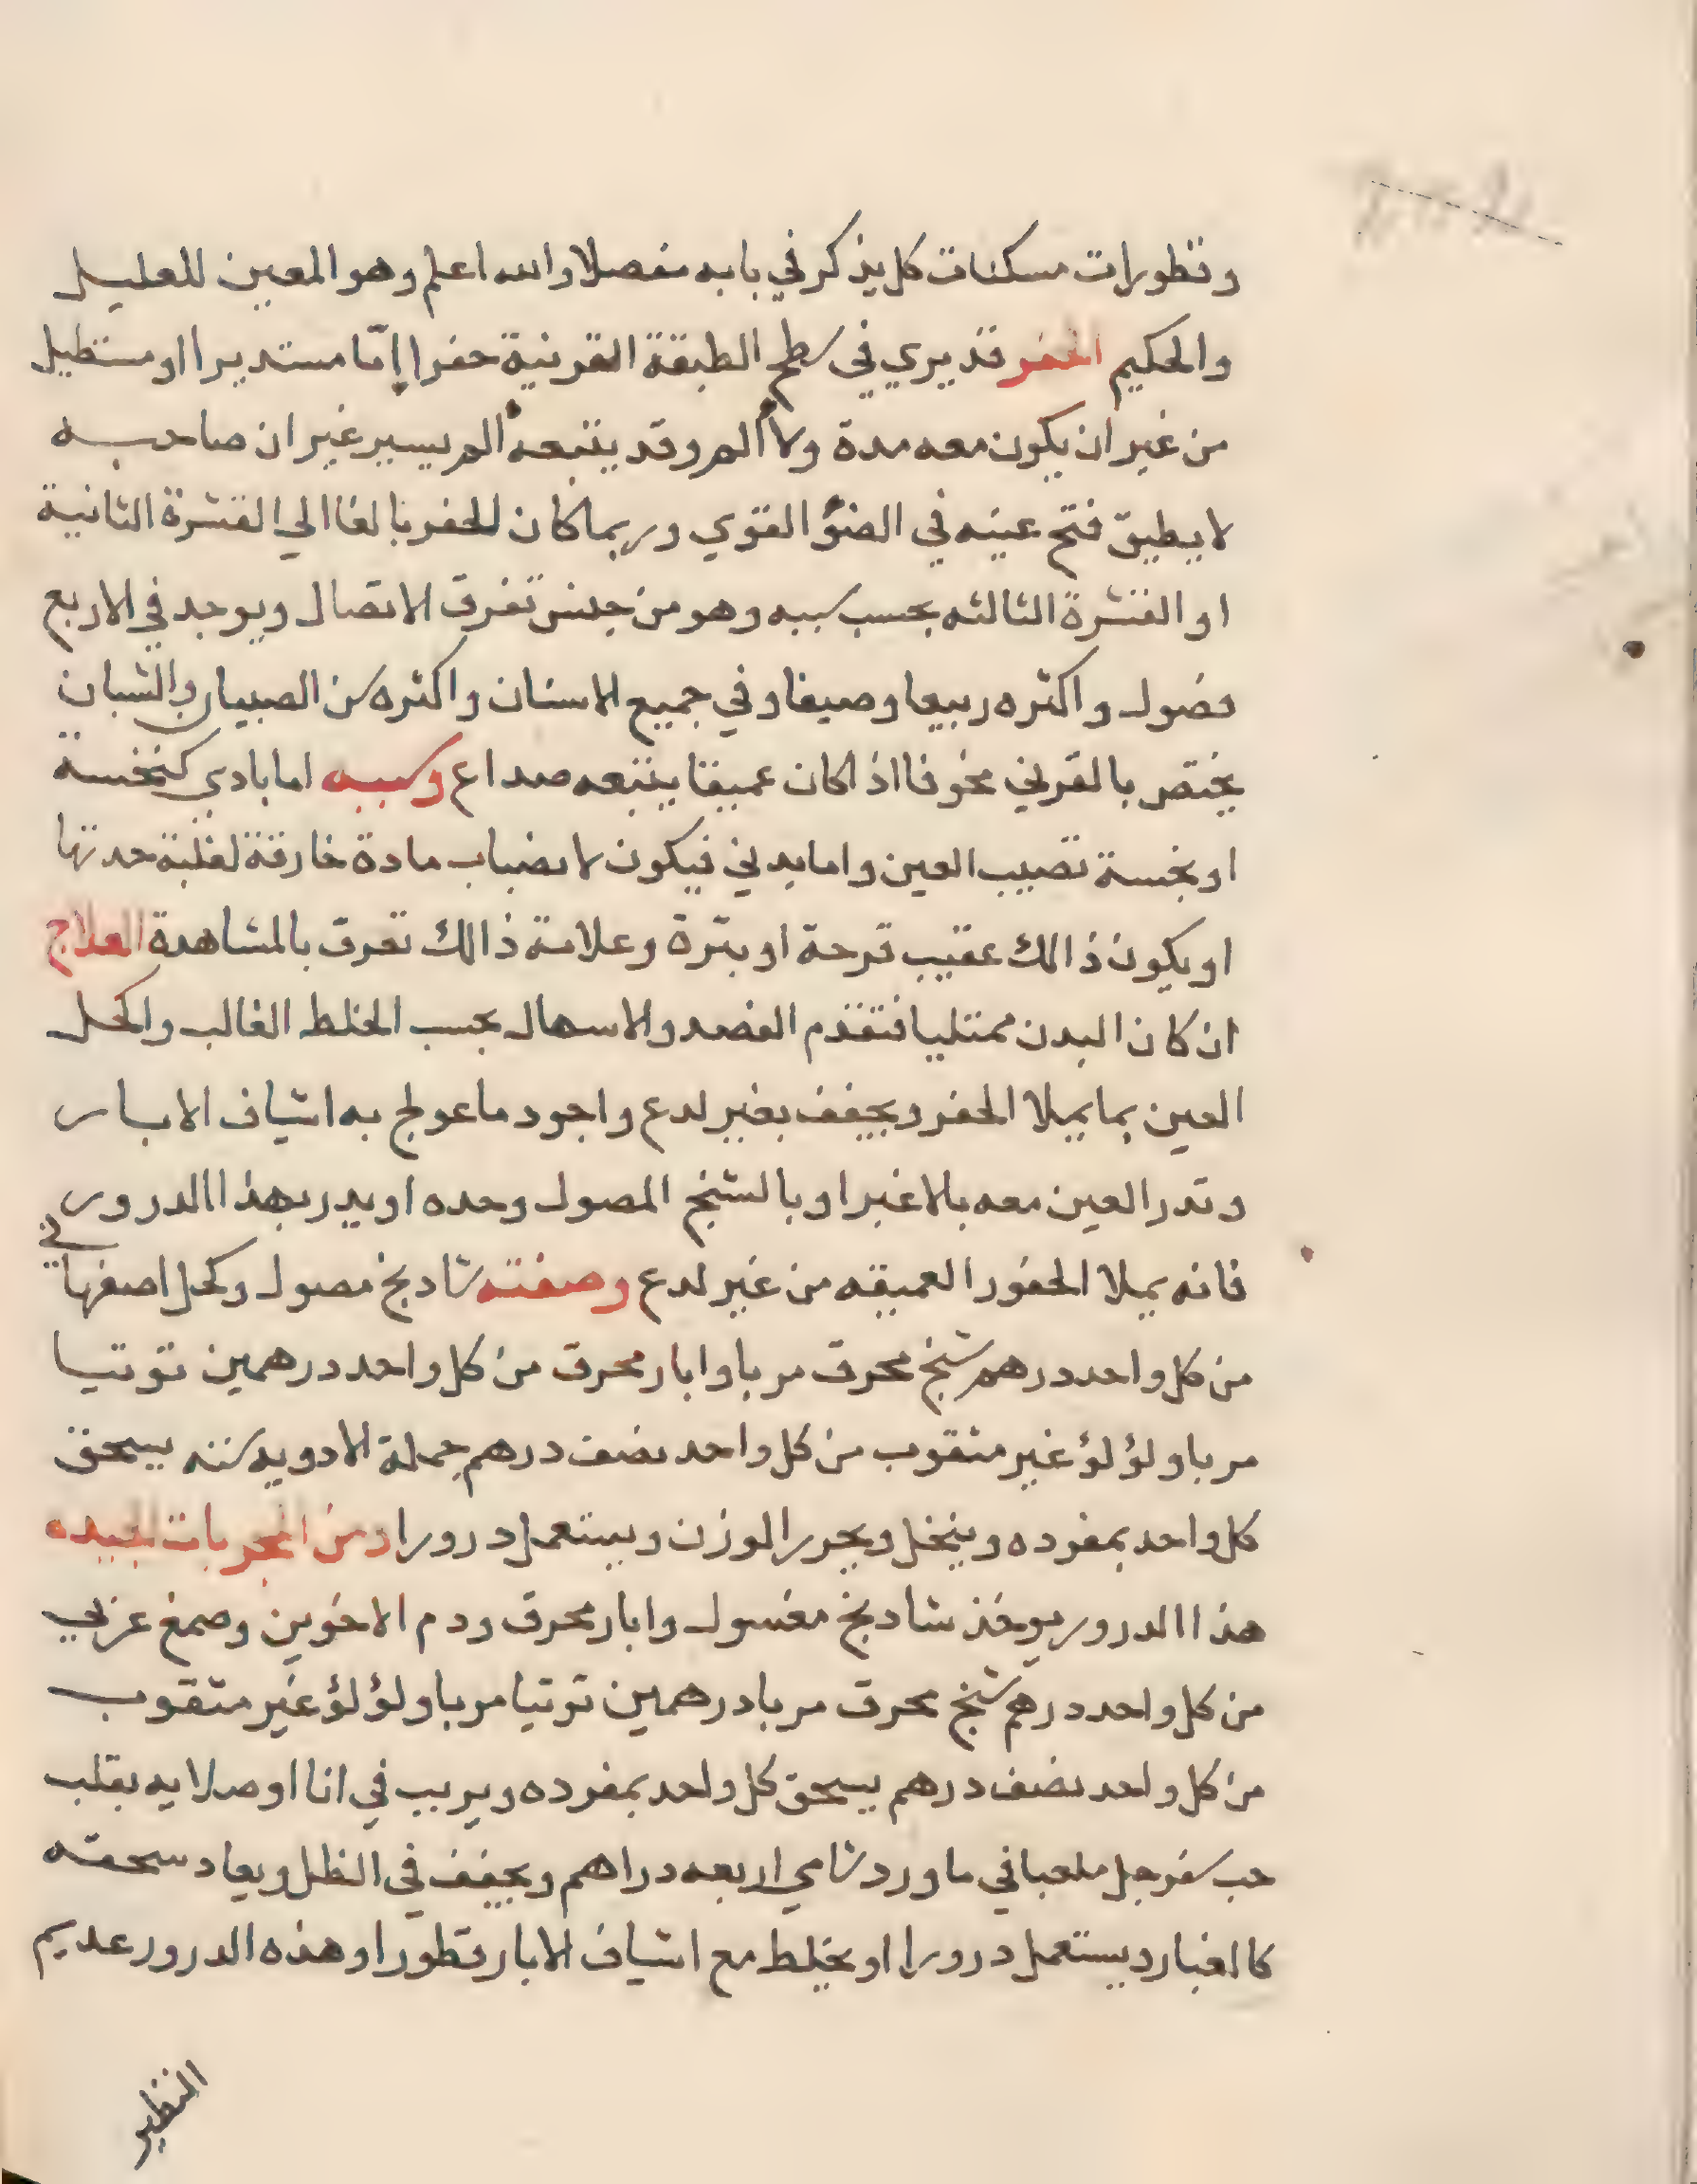 وقطورات مسكنات كل يذكر في بابه مفصلا والله اعلم وهو المعين للعليل
والحكيم الحفر قد يري في سطح الطبقة القرنية حفرا إمّا مستديرا او مستطيل
من غير ان يكون معه مدة ولا ألم وقد يتبعه ألم يسير غير ان صاحبه
لا يطيق فتح عينه في الضؤ القوي وربما كان الحفر بالغا الي القشرة الثانية
او القشرة الثالثه بحسب سببه وهو من جنس تفرق الاتصال ويوجد في الاربع
فصول واكثره ربيعا وصيفا وفي جميع الاسنان واكثره سن الصبيان والشبان
يختص بالقرني مخوفا اذا كان عميقا يتبعه صداع وسببه اما بادي كنخسة
او بخسة تصيب العين واما بدني فيكون لانضباب مادة خارقة لغلبة حدتها
او يكون ذالك عقيب قرحة او بترة وعلامة ذالك تعرف بالمشاهدة العلاج
ان كان البدن ممتليا فتقدم الفصد والاسهال بحسب الخلط الغالب واكحل
العين بما يملا الحفر ويجفف بغير لدع واجود ما عولج به اشياف الابار
وتدر العين معه بالاغبر او بالشنج المصول وحده او يدر بهذا الدرور
فانه يملا الحفور العميقه من غير لدع وصفته شادنج مصول وكحل اصفهاني
من كل واحد درهم شنج محرق مربا وابار محرق من كل واحد درهمين توتيا
مربا ولؤلؤ غير مثقوب من كل واحد نصف درهم جملة الادويه سته يسحق
كل واحد بمفرده وينخل ويحرر الوزن ويستعمل درورا ومن المجربات الجيده
هذا الدرور يوخذ شادنج مغسول وابار محرق ودم الاخوين وصمغ عربي
من كل واحد درهم شنج محرق مربا درهمين توتيا مربا ولؤلؤ غير مثقوب
من كل واحد نصف درهم يسحق كل واحد بمفرده ويربب في انا او صلايه بقلب
حب سفرجل ملعبا في ما ورد شامي اربعه دراهم ويجفف في الظل ويعاد سحقه
كالغبار ويستعمل درورا او يخلط مع اشياف الابار قطورا وهذه الدرور عديم
النظير